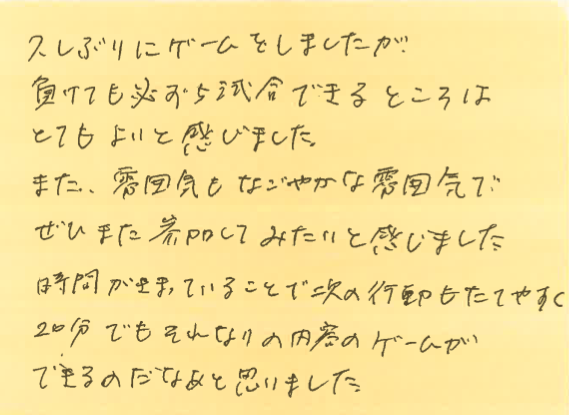 久しぶりにゲームをしましたが
負けても必ず5試合できるところは
とてもよいと感じました。
また、雰囲気もなごやかな雰囲気で
ぜひまた参加してみたいと感じました
時間がきまっていることで次の行動もたてやすく
20分でもそれなりの内容のゲームが
できるのだなあと思いました。